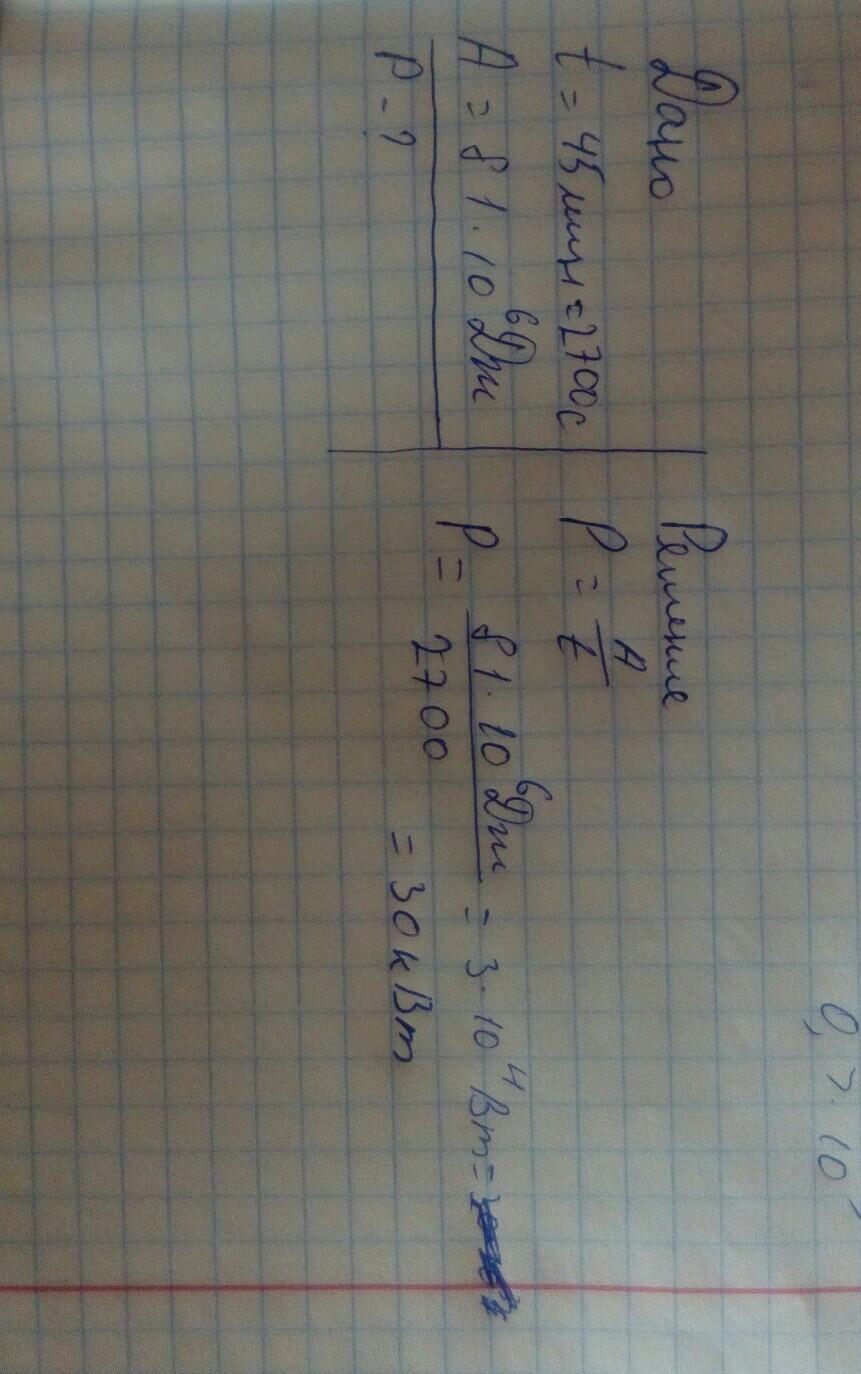 Дано
t = 45 мин = 2700с
A = 81·10⁶ Дж
P - ?
Решение
P = A/t
P = 81·10⁶ Дж / 2700 = 3·10⁴ Вт =
= 30 кВт